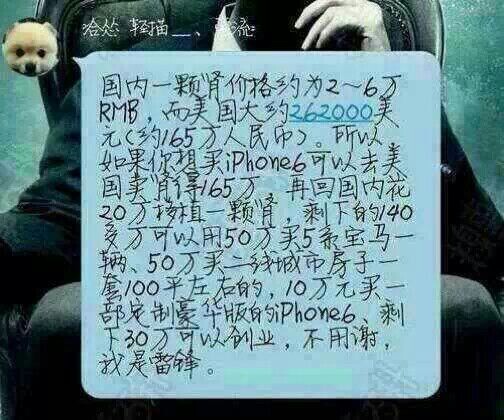 国内一颗肾价格约为2~6万
RMB，而美国大约262000美
元(约165万人民币)。所以
如果你想买iPhone6可以去美
国卖肾得165万，再回国内花
20万移植一颗肾，剩下的140
多万可以用50万买5系宝马一
辆、50万买二线城市房子一
套100平左右的，10万元买一
部定制豪华版的iPhone6、剩
下30万可以创业，不用谢，
我是雷锋。